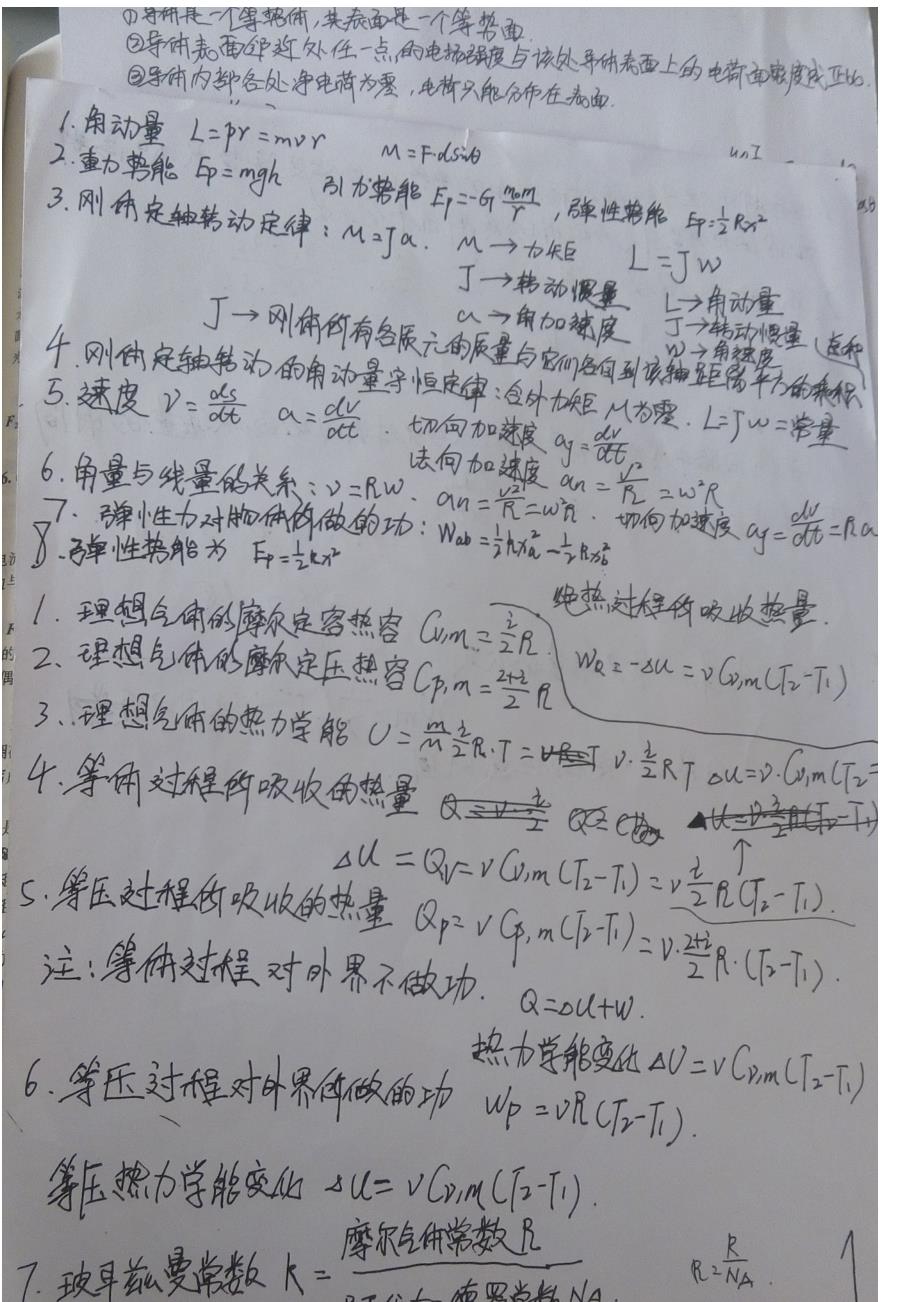 ①导体是一个等势体,其表面是一个等势面
②导体表面邻近处任一点的电场强度与该处导体表面上的电荷面密度成正比.
③导体内部各处净电荷为零,电荷只能分布在表面.
1.角动量 L=pr=mvr M=F·dsinθ
2.重力势能 Ep=mgh 引力势能 Ep=-G m₀m/r ,弹性势能 Ep=½kx²
3.刚体定轴转动定律:M=Ja. M→力矩 L=Jw
J→转动惯量 L→角动量
a→角加速度 J→转动惯量
w→角速度
J→刚体所有各质元的质量与它们各自到该轴距离平方的乘积
4.刚体定轴转动的角动量守恒定律:合外力矩 M为零. L=Jw=常量
5.速度 v=ds/dt a=dv/dt . 切向加速度 ag=dv/dt
法向加速度 an=v²/R=w²R
6.角量与线量的关系:v=Rw. an=v²/R=w²R. 切向加速度 ag=dv/dt=Ra
7. 弹性力对物体所做的功:Wab=½kxa²-½kxb²
8.弹性势能为 Ep=½kx²
绝热过程所吸收热量.
WQ=-ΔU=νCv,m(T₂-T₁)
1.理想气体的摩尔定容热容 Cv,m=i/2 R.
2.理想气体的摩尔定压热容 Cp,m=2+i/2 R
3.理想气体的热力学能 U=m/M i/2 R·T= ν·i/2 RT ΔU=ν·Cv,m(T₂-
4.等体过程所吸收的热量
ΔU=Qv=νCv,m(T₂-T₁)=ν i/2 R(T₂-T₁).
5.等压过程所吸收的热量 Qp=νCp,m(T₂-T₁)=ν·2+i/2 R·(T₂-T₁).
注:等体过程对外界不做功. Q=ΔU+W.
热力学能变化 ΔU=νCv,m(T₂-T₁)
6.等压过程对外界所做的功 Wp=νR(T₂-T₁).
等压热力学能变化 ΔU=νCv,m(T₂-T₁).
7.玻耳兹曼常数 k=摩尔气体常数R k=R/NA.